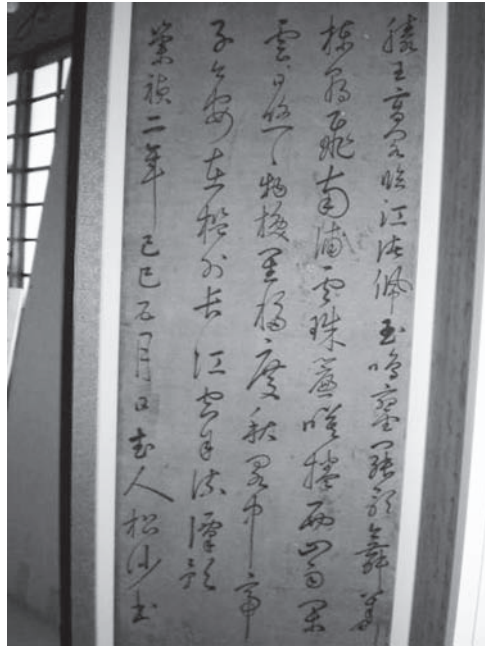 滕王高閣臨江渚佩玉鳴鑾罷歌舞畫
棟朝飛南浦雲珠簾暮捲西山雨閒
雲日悠々物換星移度秋閣中帝
子今安在檻外長江空自流潭影
崇禎二年己巳元月日人松書